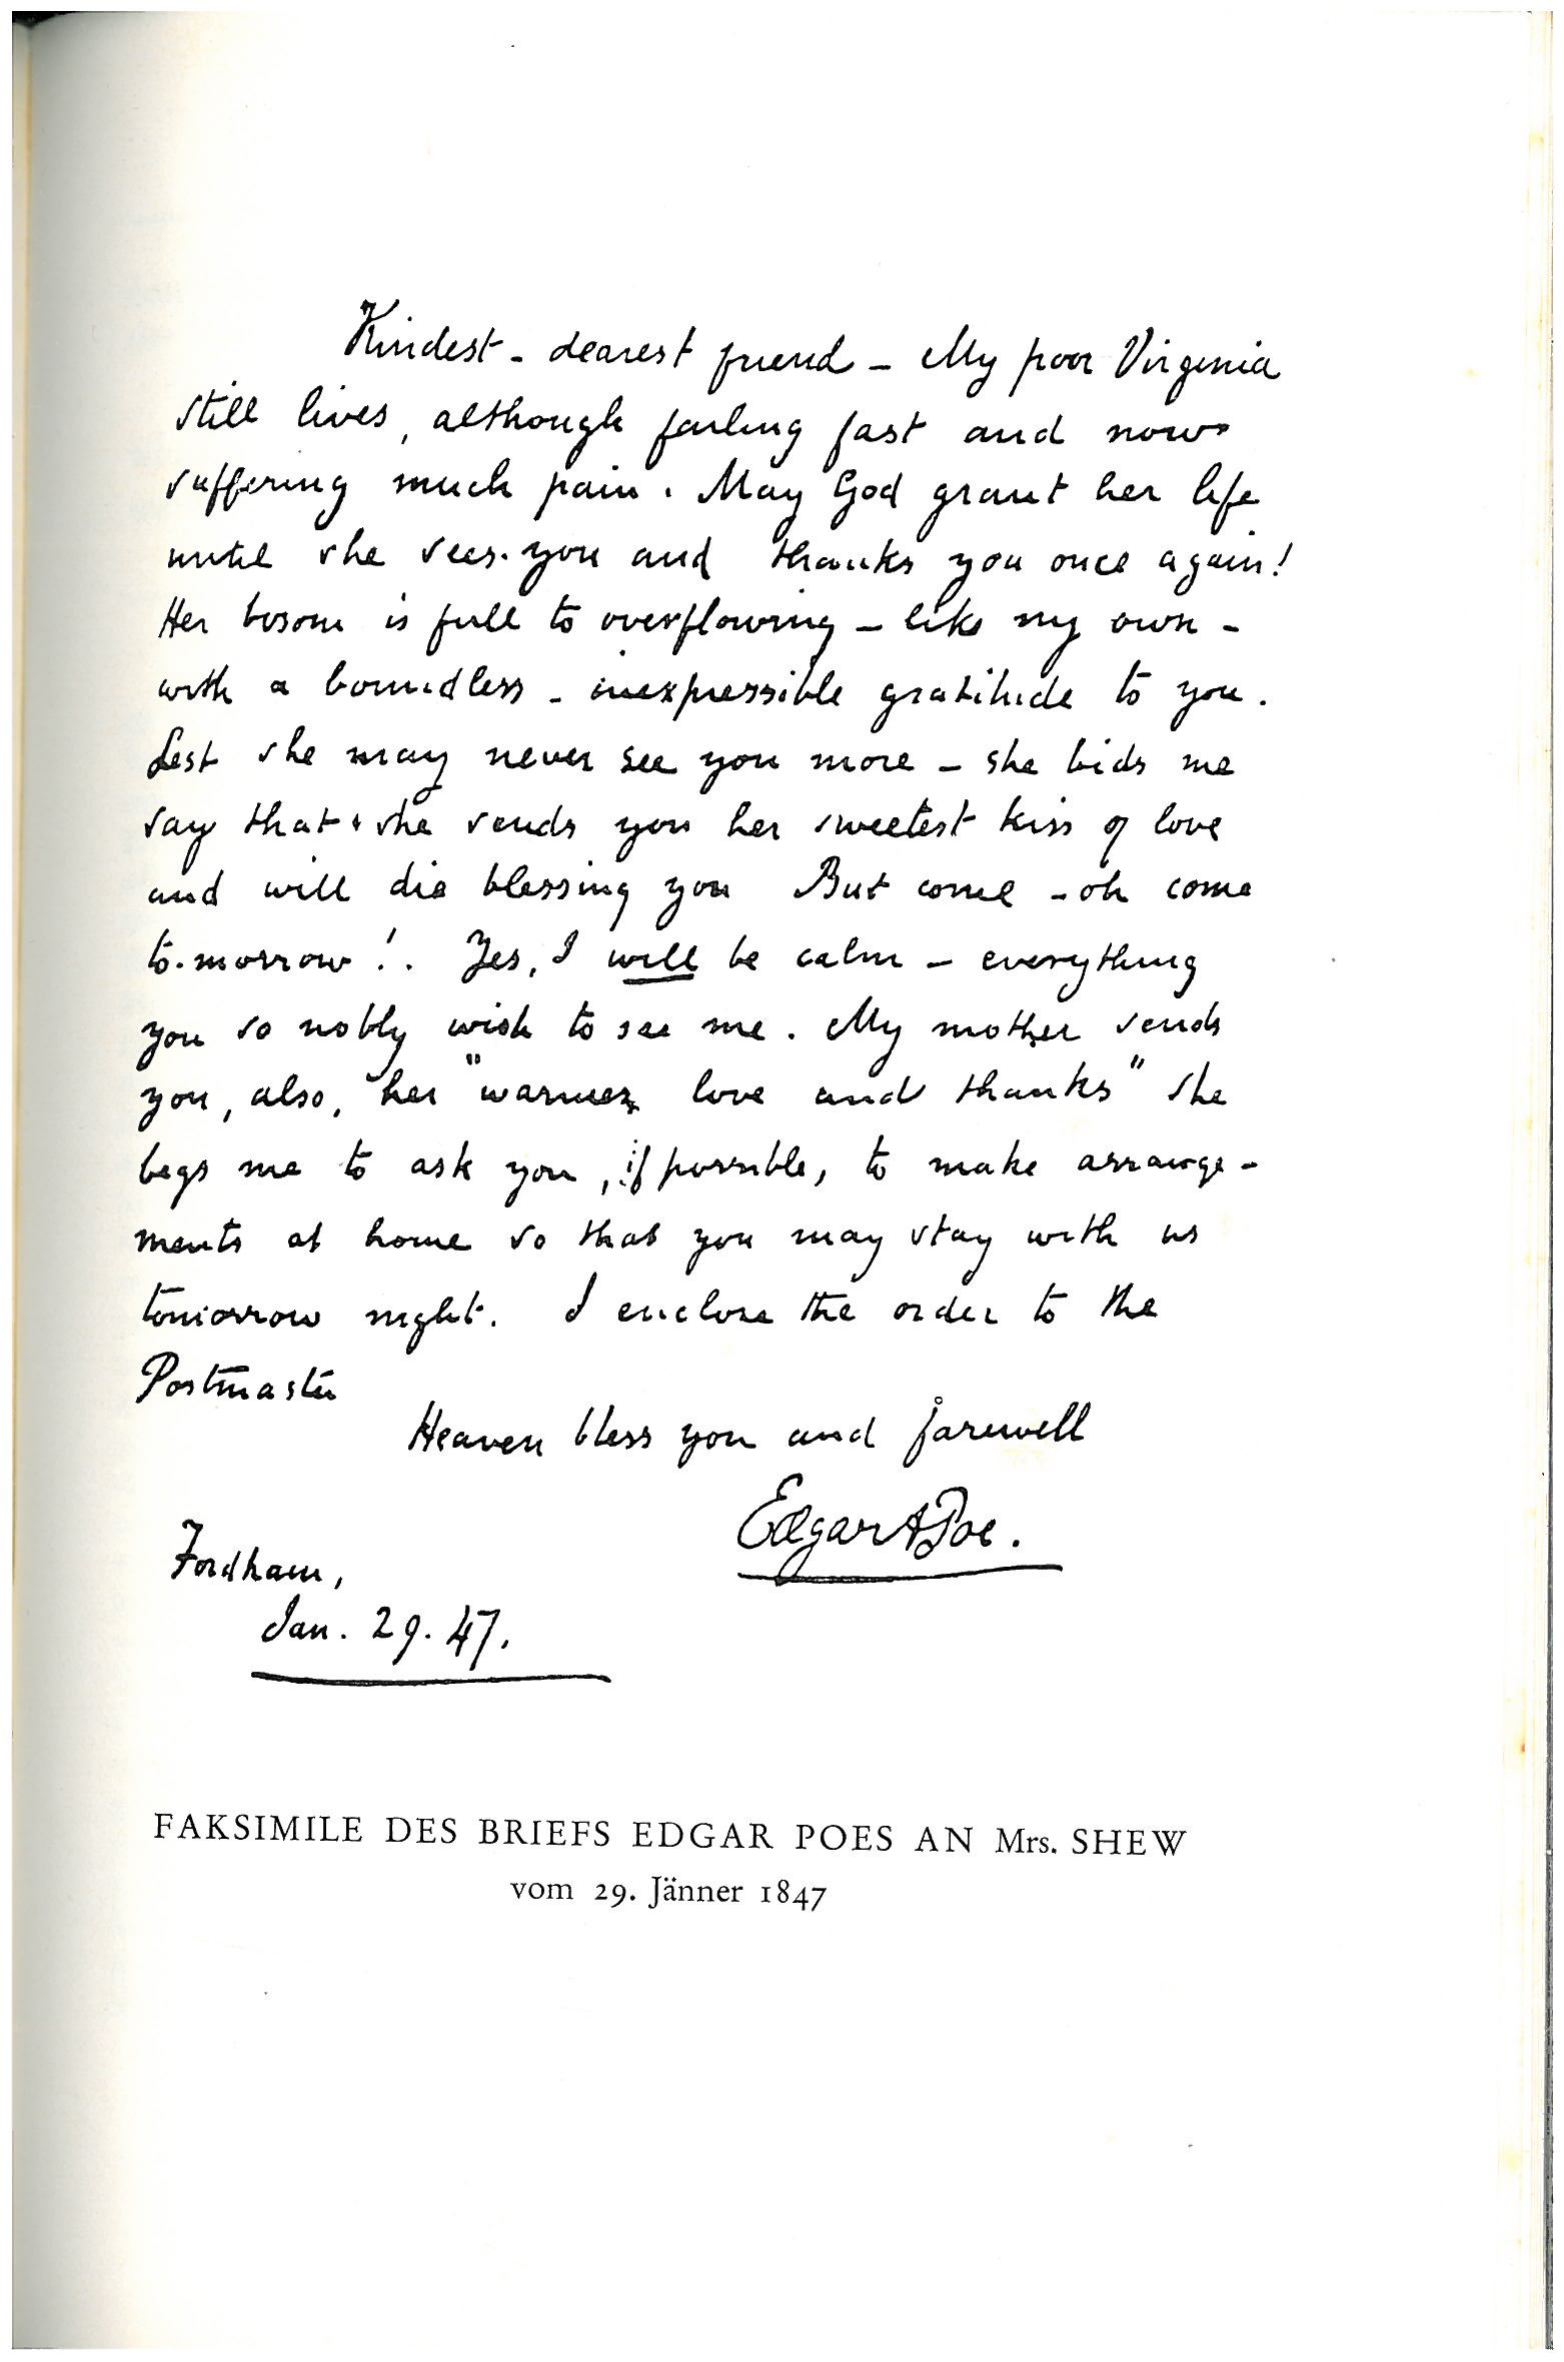 Kindest - dearest friend - My poor Virginia
still lives, although failing fast and now
suffering much pain. May God grant her life
until she sees you and thanks you once again!
Her bosom is full to overflowing - like my own -
with a boundless - inexpressible gratitude to you.
Lest she may never see you more - she bids me
say that she sends you her sweetest kiss of love
and will die blessing you But come - oh come
to-morrow! . Yes, I will be calm - everything
you so nobly wish to see me. My mother sends
you, also, her "warmes love and thanks" She
begs me to ask you, if possible, to make arrange-
ments at home so that you may stay with us
tomorrow night. I enclose the order to the
Postmaster
Heaven bless you and farewell
Edgar A Poe.
Fordham,
Jan. 29. 47.
FAKSIMILE DES BRIEFS EDGAR POES AN Mrs. SHEW
vom 29. Jänner 1847